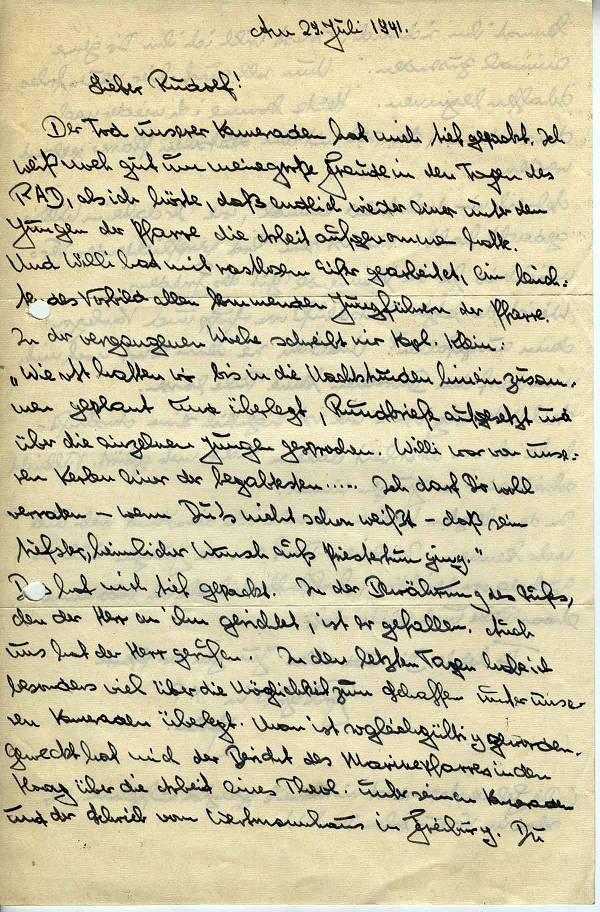 Am 29. Juli 1941.
Lieber Rudolf!
Der Tod unserer Kameraden hat mich tief gepackt. Ich
weiß noch gut um meine große Freude in den Tagen des
RAD, als ich hörte, daß endlich wieder einer unter den
Jungen der Pfarre die Arbeit aufgenommen hatte.
Und Willi hat mit rastlosem Eifer gearbeitet, ein leuch-
tendes Vorbild allen kommenden Jungführern der Pfarre.
In der vergangenen Woche schreibt mir Kapl. Klein:
„Wie oft hatten wir bis in die Nachtstunden hinein zusam-
men geplant und überlegt, Rundbriefe aufgesetzt und
über die einzelnen Jungen gesprochen. Willi war von unse-
ren Kerlen einer der begabtesten..... Ich darf Dir wohl
verraten – wenn Du's nicht schon weißt – daß sein
tiefster, heimlicher Wunsch aufs Priestertum ging."
Das hat mich tief gepackt. In der Bewährung des Rufes,
den der Herr an ihn gerichtet, ist er gefallen. Auch
uns hat der Herr gerufen. In den letzten Tagen habe ich
besonders viel über die Möglichkeit zum Schaffen unter unse-
ren Kameraden überlegt. Man ist so gleichgültig geworden.
Geweckt hat mich der Bericht des Marinepfarrers in den
Haag über die Arbeit eines Theol. unter seinen Kameraden
und der Schrieb vom Werthmannhaus in Freiburg. Du